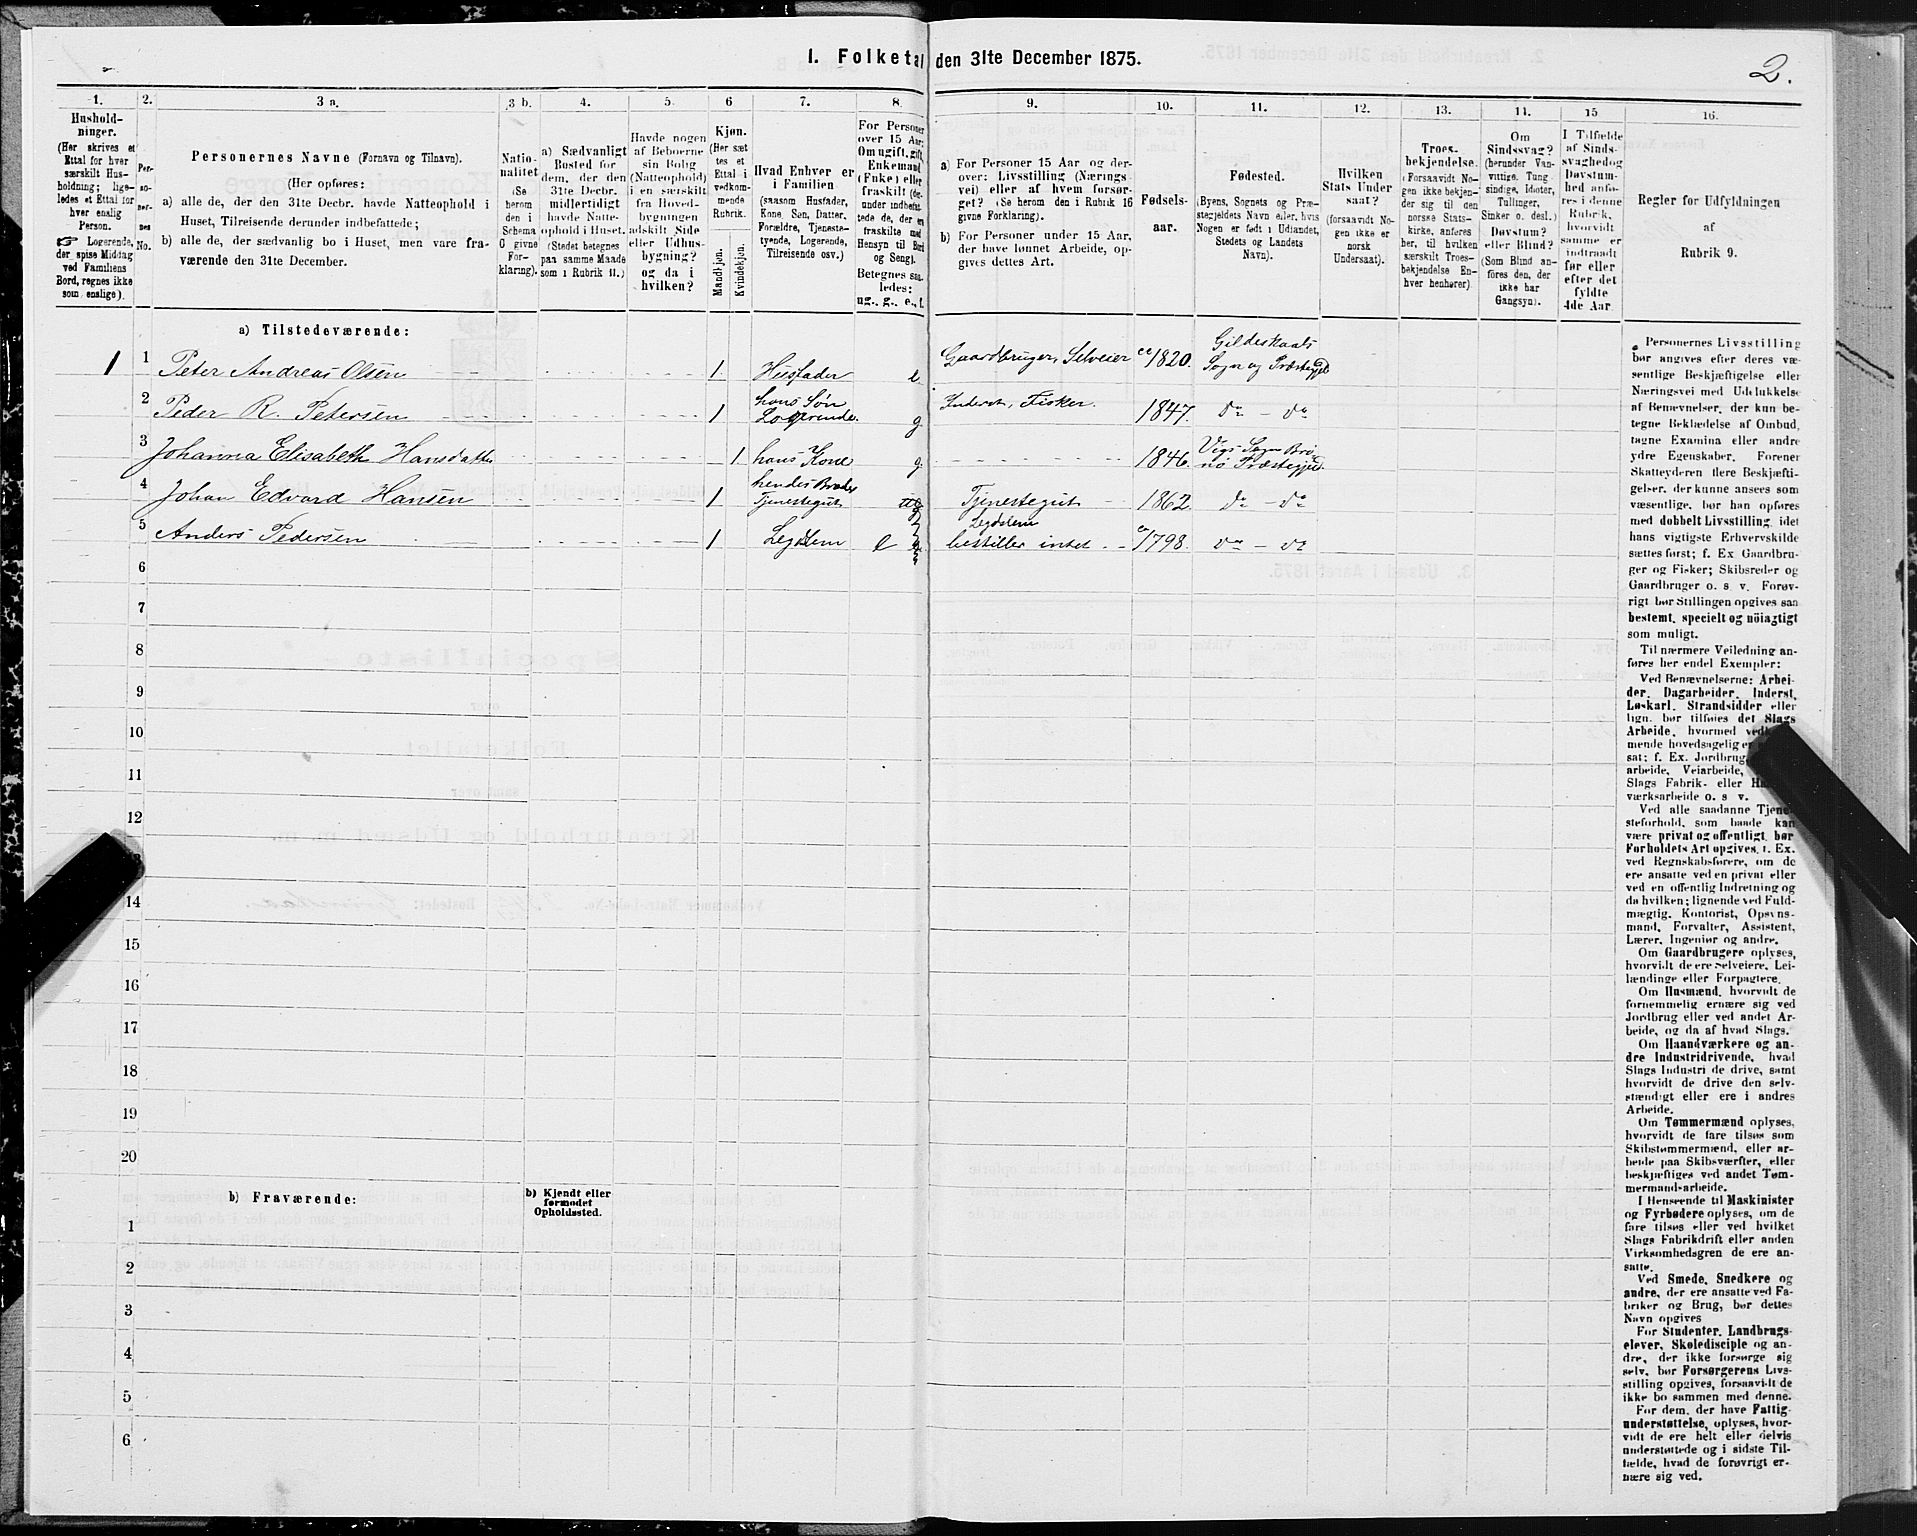 1. Folketal den 31te December 1875.
2.
1.
Hushold-
ninger.
(Her skrives et
Ettal for hver
særskilt Hus-
holdning; lige-
ledes et Ettal for
hver enslig
Person.
☞ Logerende,
der spise Middag
ved Familiens
Bord, regnes ikke
som enslige).
2.
Per-
so-
ner-
nes
No.
3 a.
Personernes Navne (Fornavn og Tilnavn).
(Her opføres:
a) alle de, der den 31te Decbr. havde Natteophold i
Huset, Tilreisende derunder indbefattede;
b) alle de, der sædvanlig bo i Huset, men vare fra-
værende den 31te December.
3 b.
Natio-
nalitet
(Se
herom
den i
Schema
C givne
For-
klaring).
4.
a) Sædvanligt
Bosted for
dem, der den
31te Decbr.
midlertidigt
havde Natte-
ophold i Huset.
(Stedet betegnes
paa samme Maade
som i Rubrik 11.)
5.
Havde nogen
af Beboerne
sin Bolig
(Natteophold)
i en særskilt
fra Hoved-
bygningen
adskilt Side
eller Udhus-
bygning?
og da i
hvilken?
6
Kjøn.
(Her sæt
tes et
Ettal i
vedkom-
mende
Rubrik.
Mandkjøn.
Kvindekjøn.
7.
Hvad Enhver er
i Familien
(saasom Husfader,
Kone, Søn, Datter,
Forældre, Tjeneste-
tyende, Logerende,
Tilreisende osv.)
8.
For Personer
over 15 Aar:
Om ugift, gift,
Enkemand
(Enke) eller
fraskilt (der-
under indbefat-
tede de, der ere
fraskilte med
Hensyn til Bord
og Seng).
Betegnes saa-
ledes:
ug., g., e., f.
9.
a) For Personer 15 Aar og der-
over: Livsstilling (Nærings-
vei) eller af hvem forsør-
get? (Se herom den i Rubrik 16
givne Forklaring).
b) For Personer under 15 Aar,
der have lønnet Arbeide, op-
gives dettes Art.
10.
Fødsels-
aar.
11.
Fødested.
(Byens, Sognets og Præ-
stegjeldets Navn eller, hvis
Nogen er født i Udlandet,
Stedets og Landets
Navn).
12.
Hvilken
Stats Under
saat?
(forsaavidt No-
gen ikke er
norsk
Undersaat).
13.
Troes-
bekjendelse.
(Forsaavidt No-
gen ikke bekjen-
der sig til den
norske Stats-
kirke, anføres
her, til hvilken
særskilt Troes-
bekjendelse En-
hver henhører).
14.
Om
Sindssvag?
(herunder Van-
vittige, Tung
sindige, Idioter,
Tullinger,
Sinker o. desl.)
Døvstum?
eller Blind?
(Som Blind an-
føres den, der
ikke har
Gangsyn).
15
I Tilfælde
af Sinds-
svaghed og
Døvstum-
hed anfø-
res i denne
Rubrik,
hvorvidt
samme er
indtraadt
før eller
efter det
fyldte
4de Aar.
16.
Regler for Udfyldningen
af
Rubrik 9.
a) Tilstedeværende:
1 1 Peter Andreas Olsen 1. Husfader e. Gaardbruger, Selveier ca 1820. Gildeskaals
Sogn og Præstegjeld
2 Peder R. Petersen 1 hans Søn
Logerende. g. Inderst, Fisker. 1847. do - do
3 Johanna Elisabeth Hansdatter 1. hans Kone g. 1846. Vegs Sogn Brø-
nø Præstegjeld
4 Johan Edvard Hansen 1 hendes Broder
Tjenestegut Tjenestegut 1862 do - do
5 Anders Pedersen 1 Legdslem e Legdslem
bestiller intet ca 1798. do - do
6
7
8
9
10
11
12
13
14
15
16
17
18
19
20
b) Fraværende:
b) Kjendt eller
formodet
Opholdssted.
1
2
3
4
5
6
Personernes Livsstilling
bør angives efter deres væ-
sentlige Beskjæftigelse eller
Næringsvei med Udelukkelse
af Benævnelser, der kun be-
tegne Beklædelse af Ombud,
tagne Examina eller andre
ydre Egenskaber. Forener
Skatteyderen flere Beskjæfti-
gelser, der kunne ansees som
væsentlige, bør han opføres
med dobbelt Livsstilling, idet
hans vigtigste Erhvervskilde
sættes først; f. Ex Gaardbru-
ger og Fisker; Skibsreder og
Gaardbruger o. s. v. Forøv-
rigt bør Stillingen opgives saa
bestemt, specielt og nöiagtigt
som muligt.
Til nærmere Veiledning an-
føres her endel Exempler:
Ved Benævnelserne: Arbei-
der, Dagarbeider, Inderst,
Løskarl, Strandsidder eller
lign. bør tilføies det Slags
Arbeide, hvormed
mende hovedsagelig er
sat; f. Ex. Jordbrug,
arbeide, Veiarbeide,
Slags Fabrik- eller
værksarbeide o. s v.
Ved alle saadanne
steforhold, som baade kan
være privat og offentligt, bør
Forholdets Art opgives, f. Ex.
ved Regnskabsførere, om de
ere ansatte ved en privat eller
ved en offentlig Indretning og
da hvilken; lignende ved Fuld-
mægtig, Kontorist, Opsyns-
mand, Forvalter, Assistent,
Lærer, Ingeniør og andre.
Om Gaardbrugere oplyses,
hvorvidt de ere Selveiere, Lei-
lændinge eller Forpagtere.
Om Husmænd, hvorvidt de
fornemmelig ernære sig ved
Jordbrug eller ved andet Ar-
beide, og da af hvad Slags.
Om Haandværkere og an-
dre Industridrivende, hvad
Slags Industri de drive, samt
hvorvidt de drive den selv-
stændigt eller ere i andres
Arbeide.
Om Tømmermænd oplyses,
hvorvidt de fare tilsøs som
Skibstømmermænd, eller ar-
beide paa Skibsværfter, eller
beskjæftiges ved andet Tøm-
mermandsarbeide.
I Henseende til Maskinister
og Fyrbødere oplyses, om de
fare tilsøs eller ved hvilket
Slags Fabrikdrift eller anden
Virksomhedsgren de ere an-
satte.
Ved Smede, Snedkere og
andre, der ere ansatte ved Fa-
briker og Brug, bør dettes
Navn opgives
For Studenter, Landbrugs-
elever, Skoledisciple og an-
dre, der ikke forsørge sig
selv, bør Forsørgerens Livs-
stilling opgives, forsaavidt de
ikke bo sammen med denne.
For dem, der have Fattig-
understøttelse, oplyses, hvor-
vidt de ere helt eller delvis
understøttede og i sidste Til-
fælde, hvad de forøvrigt er-
nære sig ved.